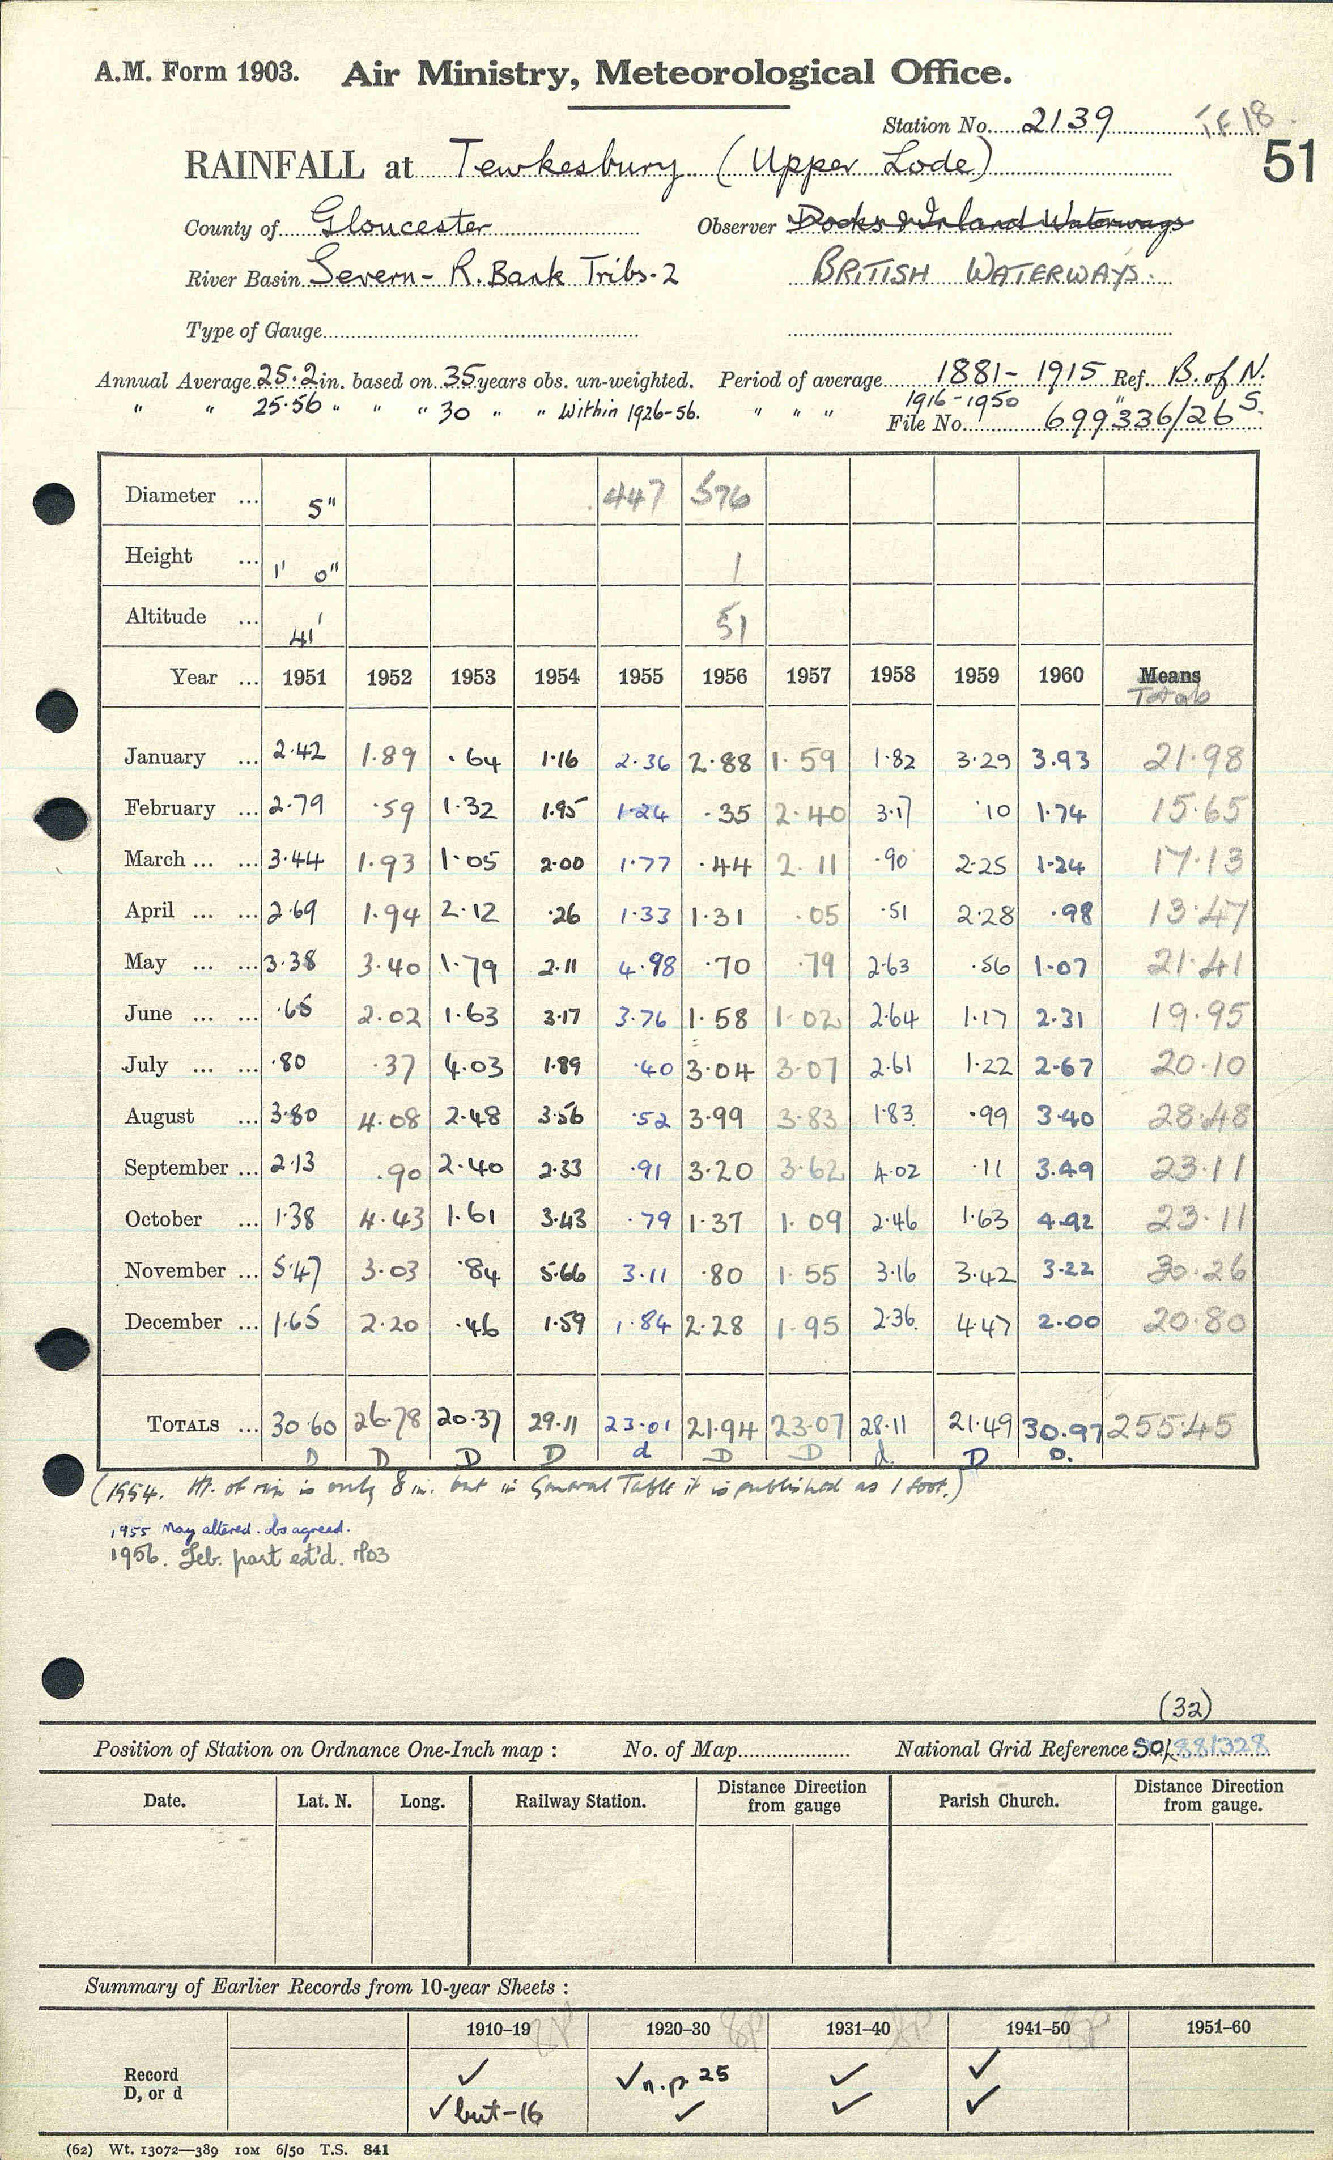 A.M. Form 1903. Air Ministry, Meteorological Office.
Station No. 2139 T.F 18.
RAINFALL at Tewkesbury (Upper Lode) 51
County of Gloucester Observer Docks & Inland Waterways
River Basin Severn - R. Bank Tribs. 2 BRITISH WATERWAYS.
Type of Gauge
Annual Average 25.2 in. based on 35 years obs. un-weighted. Period of average 1881-1915 Ref. B. of N.
" " 25.56 " " " 30 " " Within 1926-56. " " " 1916-1950 " S.
File No. 699336/26
Diameter ... 5" 447 576
Height ... 1' 0" 1
Altitude ... 41' 51
Year ... 1951 1952 1953 1954 1955 1956 1957 1958 1959 1960 Means
Totals
January ... 2.42 1.89 .64 1.16 2.36 2.88 1.59 1.82 3.29 3.93 21.98
February ... 2.79 .59 1.32 1.95 1.24 .35 2.40 3.17 .10 1.74 15.65
March ... ... 3.44 1.93 1.05 2.00 1.77 .44 2.11 .90 2.25 1.24 17.13
April ... ... 2.69 1.94 2.12 .26 1.33 1.31 .05 .51 2.28 .98 13.47
May ... ... 3.38 3.40 1.79 2.11 4.98 .70 .79 2.63 .56 1.07 21.41
June ... ... .65 2.02 1.63 3.17 3.76 1.58 1.02 2.64 1.17 2.31 19.95
July ... ... .80 .37 4.03 1.89 .40 3.04 3.07 2.61 1.22 2.67 20.10
August ... 3.80 4.08 2.48 3.56 .52 3.99 3.83 1.83 .99 3.40 28.48
September ... 2.13 .90 2.40 2.33 .91 3.20 3.62 4.02 .11 3.49 23.11
October ... 1.38 4.43 1.61 3.43 .79 1.37 1.09 2.46 1.63 4.92 23.11
November ... 5.47 3.03 .84 5.66 3.11 .80 1.55 3.16 3.42 3.22 30.26
December ... 1.65 2.20 .46 1.59 1.84 2.28 1.95 2.36 4.47 2.00 20.80
TOTALS ... 30.60 26.78 20.37 29.11 23.01 21.94 23.07 28.11 21.49 30.97 255.45
D D D D d D D d. D D.
(1954. Ht. of rim is only 8 in. but in General Table it is published as 1 foot.)
1955 May altered. obs agreed.
1956. Feb. part est'd. M03
(32)
Position of Station on Ordnance One-Inch map : No. of Map National Grid Reference SO/881328
Date. Lat. N. Long. Railway Station. Distance from gauge Direction Parish Church. Distance from gauge. Direction
Summary of Earlier Records from 10-year Sheets :
1910-19 1920-30 1931-40 1941-50 1951-60
Record ✓ ✓ n.p. 25 ✓ ✓
D, or d ✓ but-16 ✓ ✓ ✓
(62) Wt. 13072—389 10M 6/50 T.S. 841